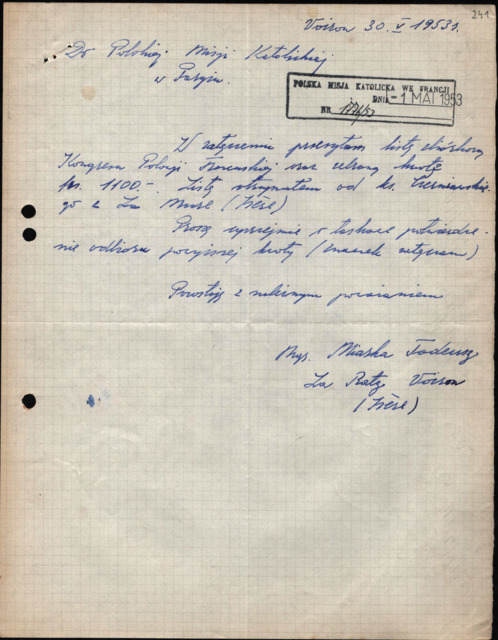 241
Voiron 30. V 1953 r.
Do Polskiej Misji Katolickiej
w Paryżu.
POLSKA MISJA KATOLICKA WE FRANCJI
DNIA - 1 MAI 1953
NR
W załączeniu przesyłam listę zbiórkową
Kongresu Polonji Francuskiej oraz zebraną kwotę
fr. 1100.- Listę otrzymałem od ks. Czerniawskie-
go z La Mure (Isère)
Proszę uprzejmie o łaskawe potwierdze-
nie odbioru powyższej kwoty (znaczek załączam)
Pozostaję z należnym poważaniem
Mgr. Miaska Tadeusz
La Ratz Voiron
(Isère)